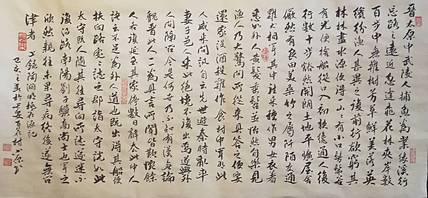 晉太原中武陵人捕魚為業緣溪行
忘路之遠近忽逢桃花林夾岸數
百步中無雜樹芳草鮮美落英
繽紛漁人甚異之復前行欲窮其
林林盡水源便得一山山有小口髣髴若
有光便捨船從口入初極狹纔通人復
行數十步豁然開朗土地平曠屋舍
儼然有良田美池桑竹之屬阡陌交通
雞犬相聞其中往來種作男女衣著
悉如外人黃髮垂髫並怡然自樂見
漁人乃大驚問所從來具答之便要
還家設酒殺雞作食村中聞有此
人咸來問訊自云先世避秦時亂率
妻子邑人來此絕境不復出焉遂與外
人間隔問今是何世乃不知有漢無論
魏晉此人一一為具言所聞皆歎惋餘
人各復延至其家停數日辭去此中人
語云不足為外人道也既出得其船便
扶向路處處誌之及郡下詣太守說如此
太守即遣人隨其往尋向所誌遂迷不
復得路南陽劉子驥高尚士也聞之欣
然規往未果尋病終後遂無問
津者 陶淵明桃花源記